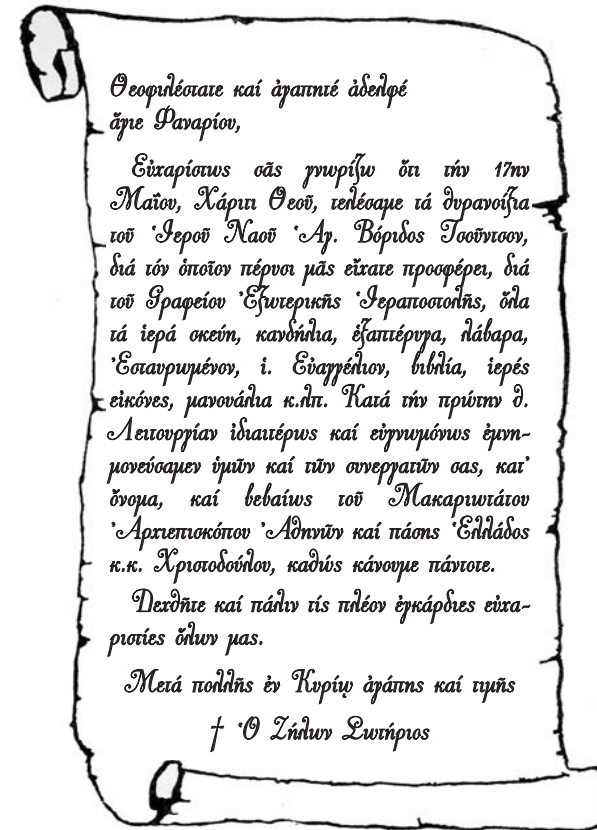 Θεοφιλέστατε καί ἀγαπητέ ἀδελφέ
ἅγιε Φαναρίου,
Εὐχαρίστως σᾶς γνωρίζω ὅτι τήν 17ην
Μαΐου, Χάριτι Θεοῦ, τελέσαμε τά θυρανοίξια
τοῦ Ἱεροῦ Ναοῦ Ἁγ. Βόριδος Τσοῦντσον,
διά τόν ὁποῖον πέρυσι μᾶς εἴχατε προσφέρει, διά
τοῦ Γραφείου Ἐξωτερικῆς Ἱεραποστολῆς, ὅλα
τά ἱερά σκεύη, κανδήλια, ἑξαπτέρυγα, λάβαρα,
Ἐσταυρωμένον, ἱ. Εὐαγγέλιον, βιβλία, ἱερές
εἰκόνες, μανουάλια κ.λπ. Κατά τήν πρώτην θ.
Λειτουργίαν ἰδιαιτέρως καί εὐγνωμόνως ἐμνη-
μονεύσαμεν ὑμῶν καί τῶν συνεργατῶν σας, κατ᾽
ὄνομα, καί βεβαίως τοῦ Μακαριωτάτου
Ἀρχιεπισκόπου Ἀθηνῶν καί πάσης Ἑλλάδος
κ.κ. Χριστοδούλου, καθώς κάνουμε πάντοτε.
Δεχθῆτε καί πάλιν τίς πλέον ἐγκάρδιες εὐχα-
ριστίες ὅλων μας.
Μετά πολλῆς ἐν Κυρίῳ ἀγάπης καί τιμῆς
† Ὁ Ζήλων Σωτήριος